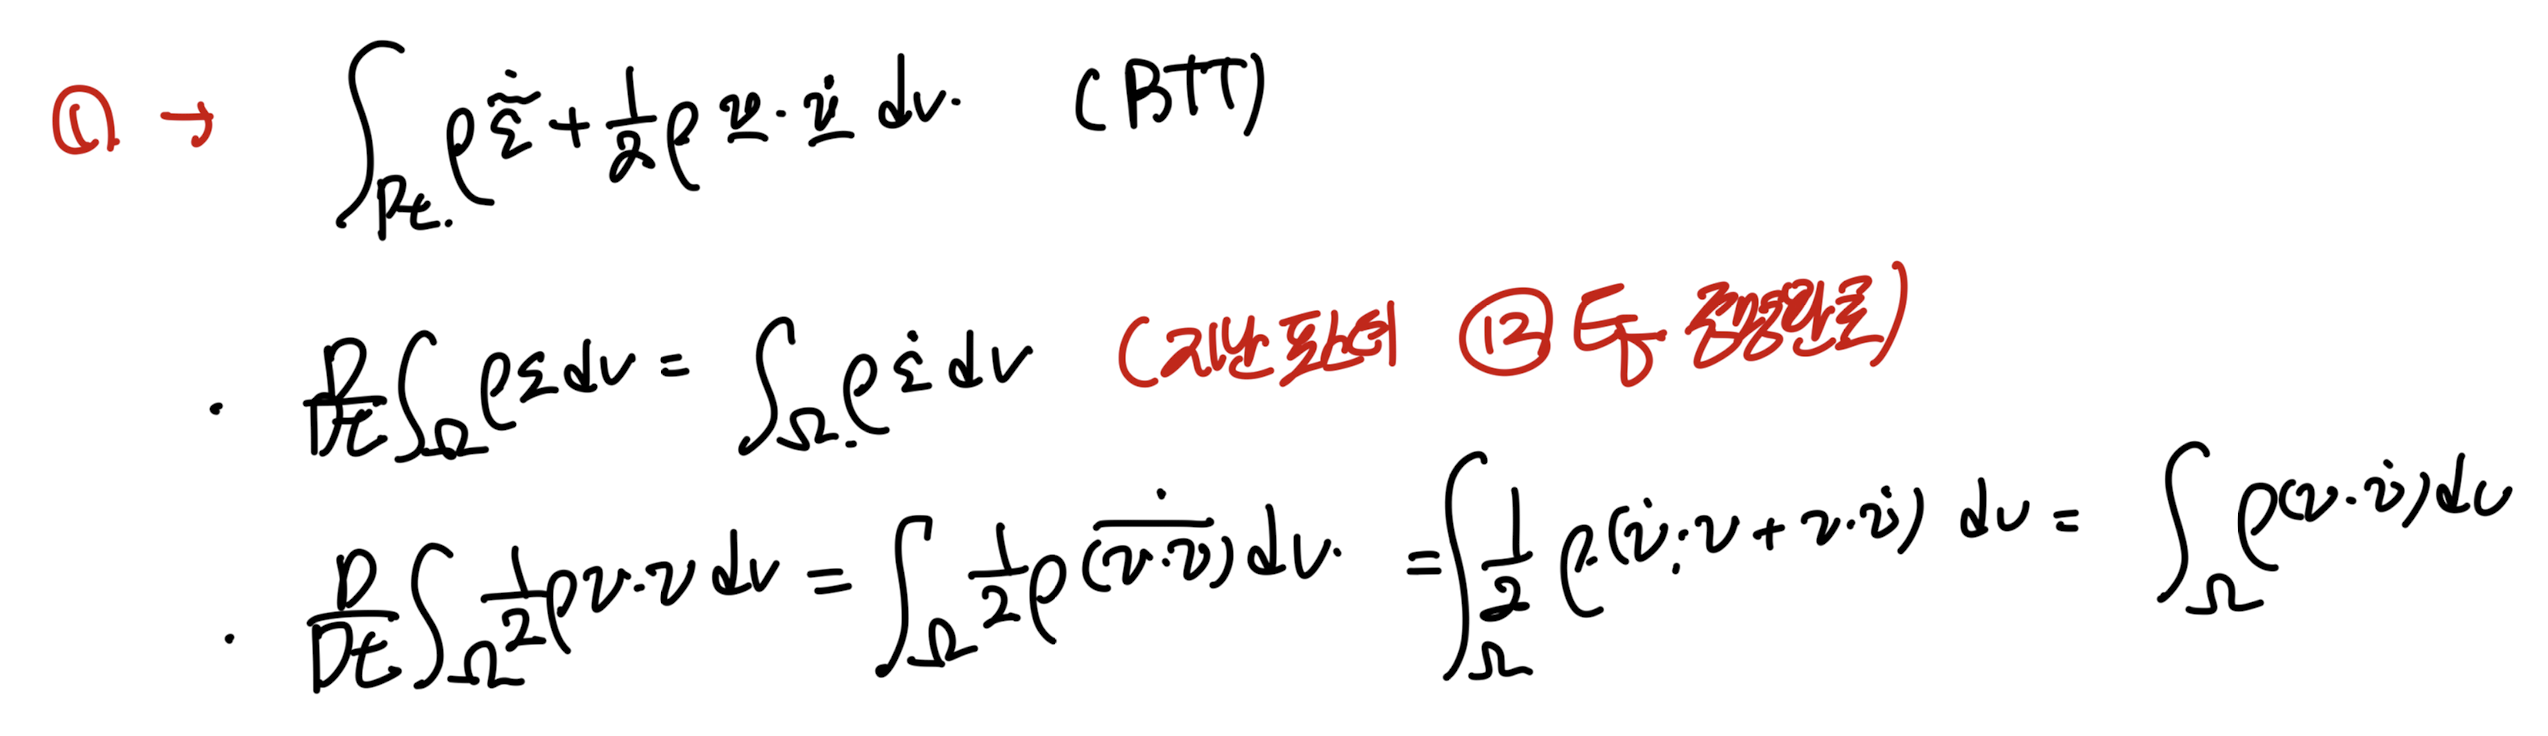 ① → ∫_{Pt.} ρ \dot{\overline{ε}} + 1/2 ρ v̲ · \dot{v̲} dv. (BTT)
· D/Dt ∫_Ω ρε dv = ∫_Ω. ρ ε̇ dv (지난 포스터 ⑫ Eq 증명완료)
· D/Dt ∫_Ω 1/2 ρ v·v dv = ∫_Ω 1/2 ρ \dot{\overline{(v·v)}} dv. = ∫_Ω 1/2 ρ (v̇·v + v·v̇) dv = ∫_Ω ρ(v·v̇) dv